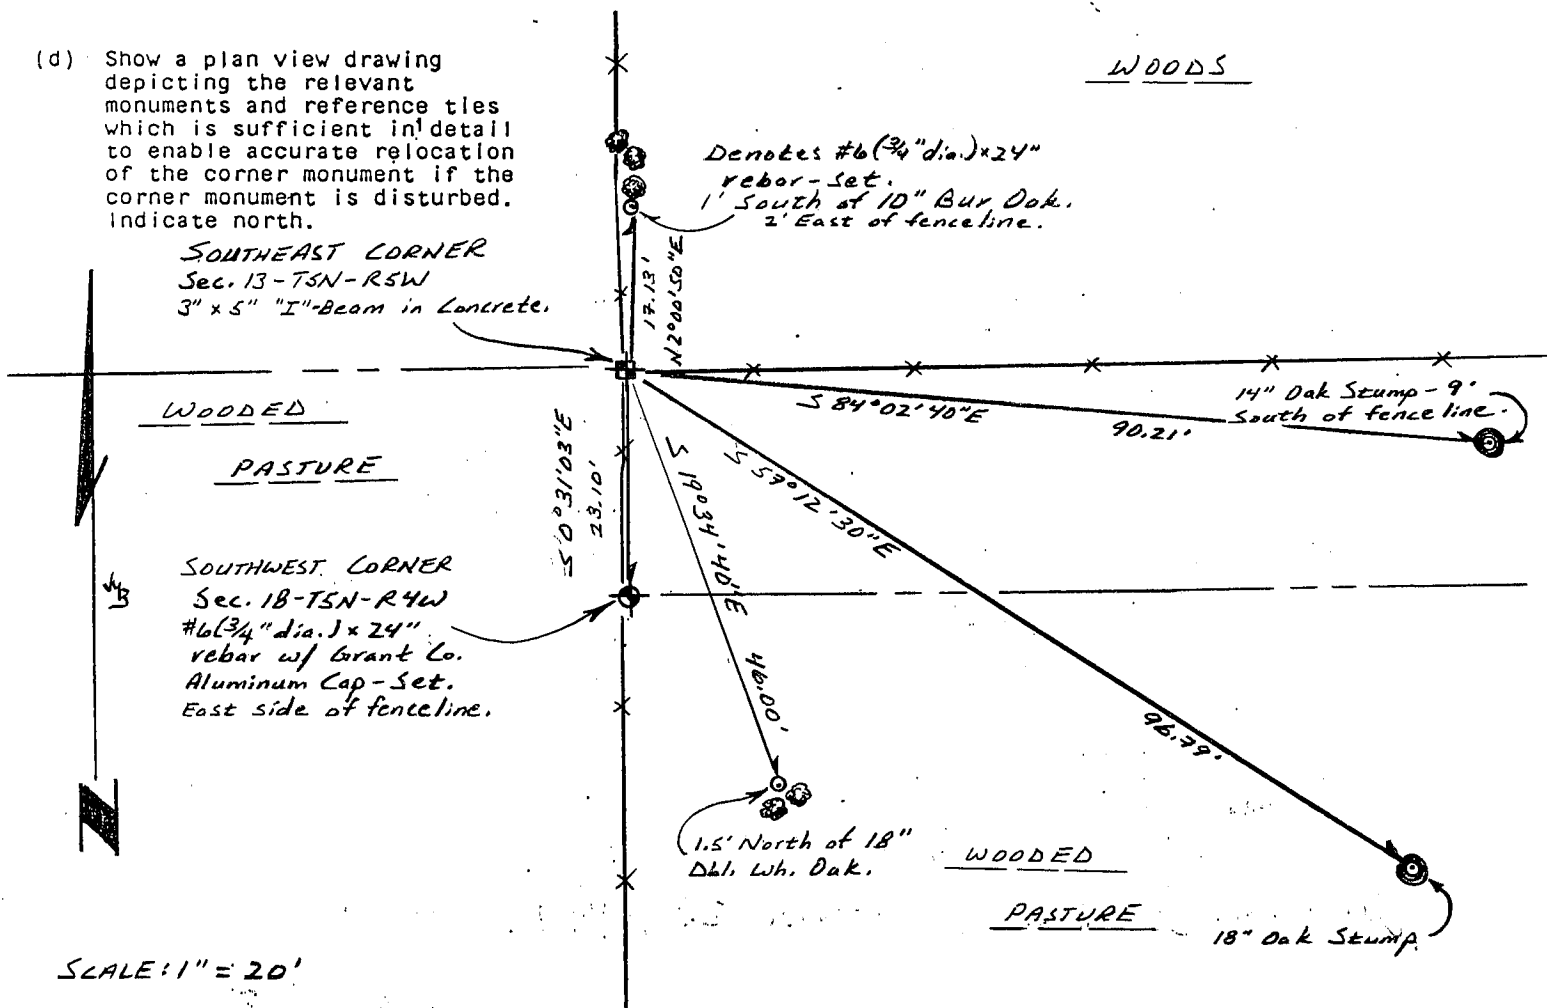 (d) Show a plan view drawing
depicting the relevant
monuments and reference ties
which is sufficient in detail
to enable accurate relocation
of the corner monument if the
corner monument is disturbed.
Indicate north.
WOODS
Denotes #6 (3/4" dia.) x 24"
rebar-set.
1' South of 10" Bur Oak.
2' East of fenceline.
SOUTHEAST CORNER
Sec. 13-T5N-R5W
3" x 5" "I"-Beam in Concrete.
17.13'
N2°00'50"E
WOODED
PASTURE
S 84°02'40"E
90.21'
14" Oak Stump - 9'
South of fenceline.
S 0°31'03"E
23.10'
S 19°34'40"E 46.00'
S 57°12'30"E
96.79'
SOUTHWEST CORNER
Sec. 18-T5N-R4W
#6 (3/4" dia.) x 24"
rebar w/ Grant Co.
Aluminum Cap - Set.
East side of fenceline.
1.5' North of 18"
Dbl. Wh. Oak.
WOODED
PASTURE
18" Oak Stump.
SCALE: 1" = 20'
N